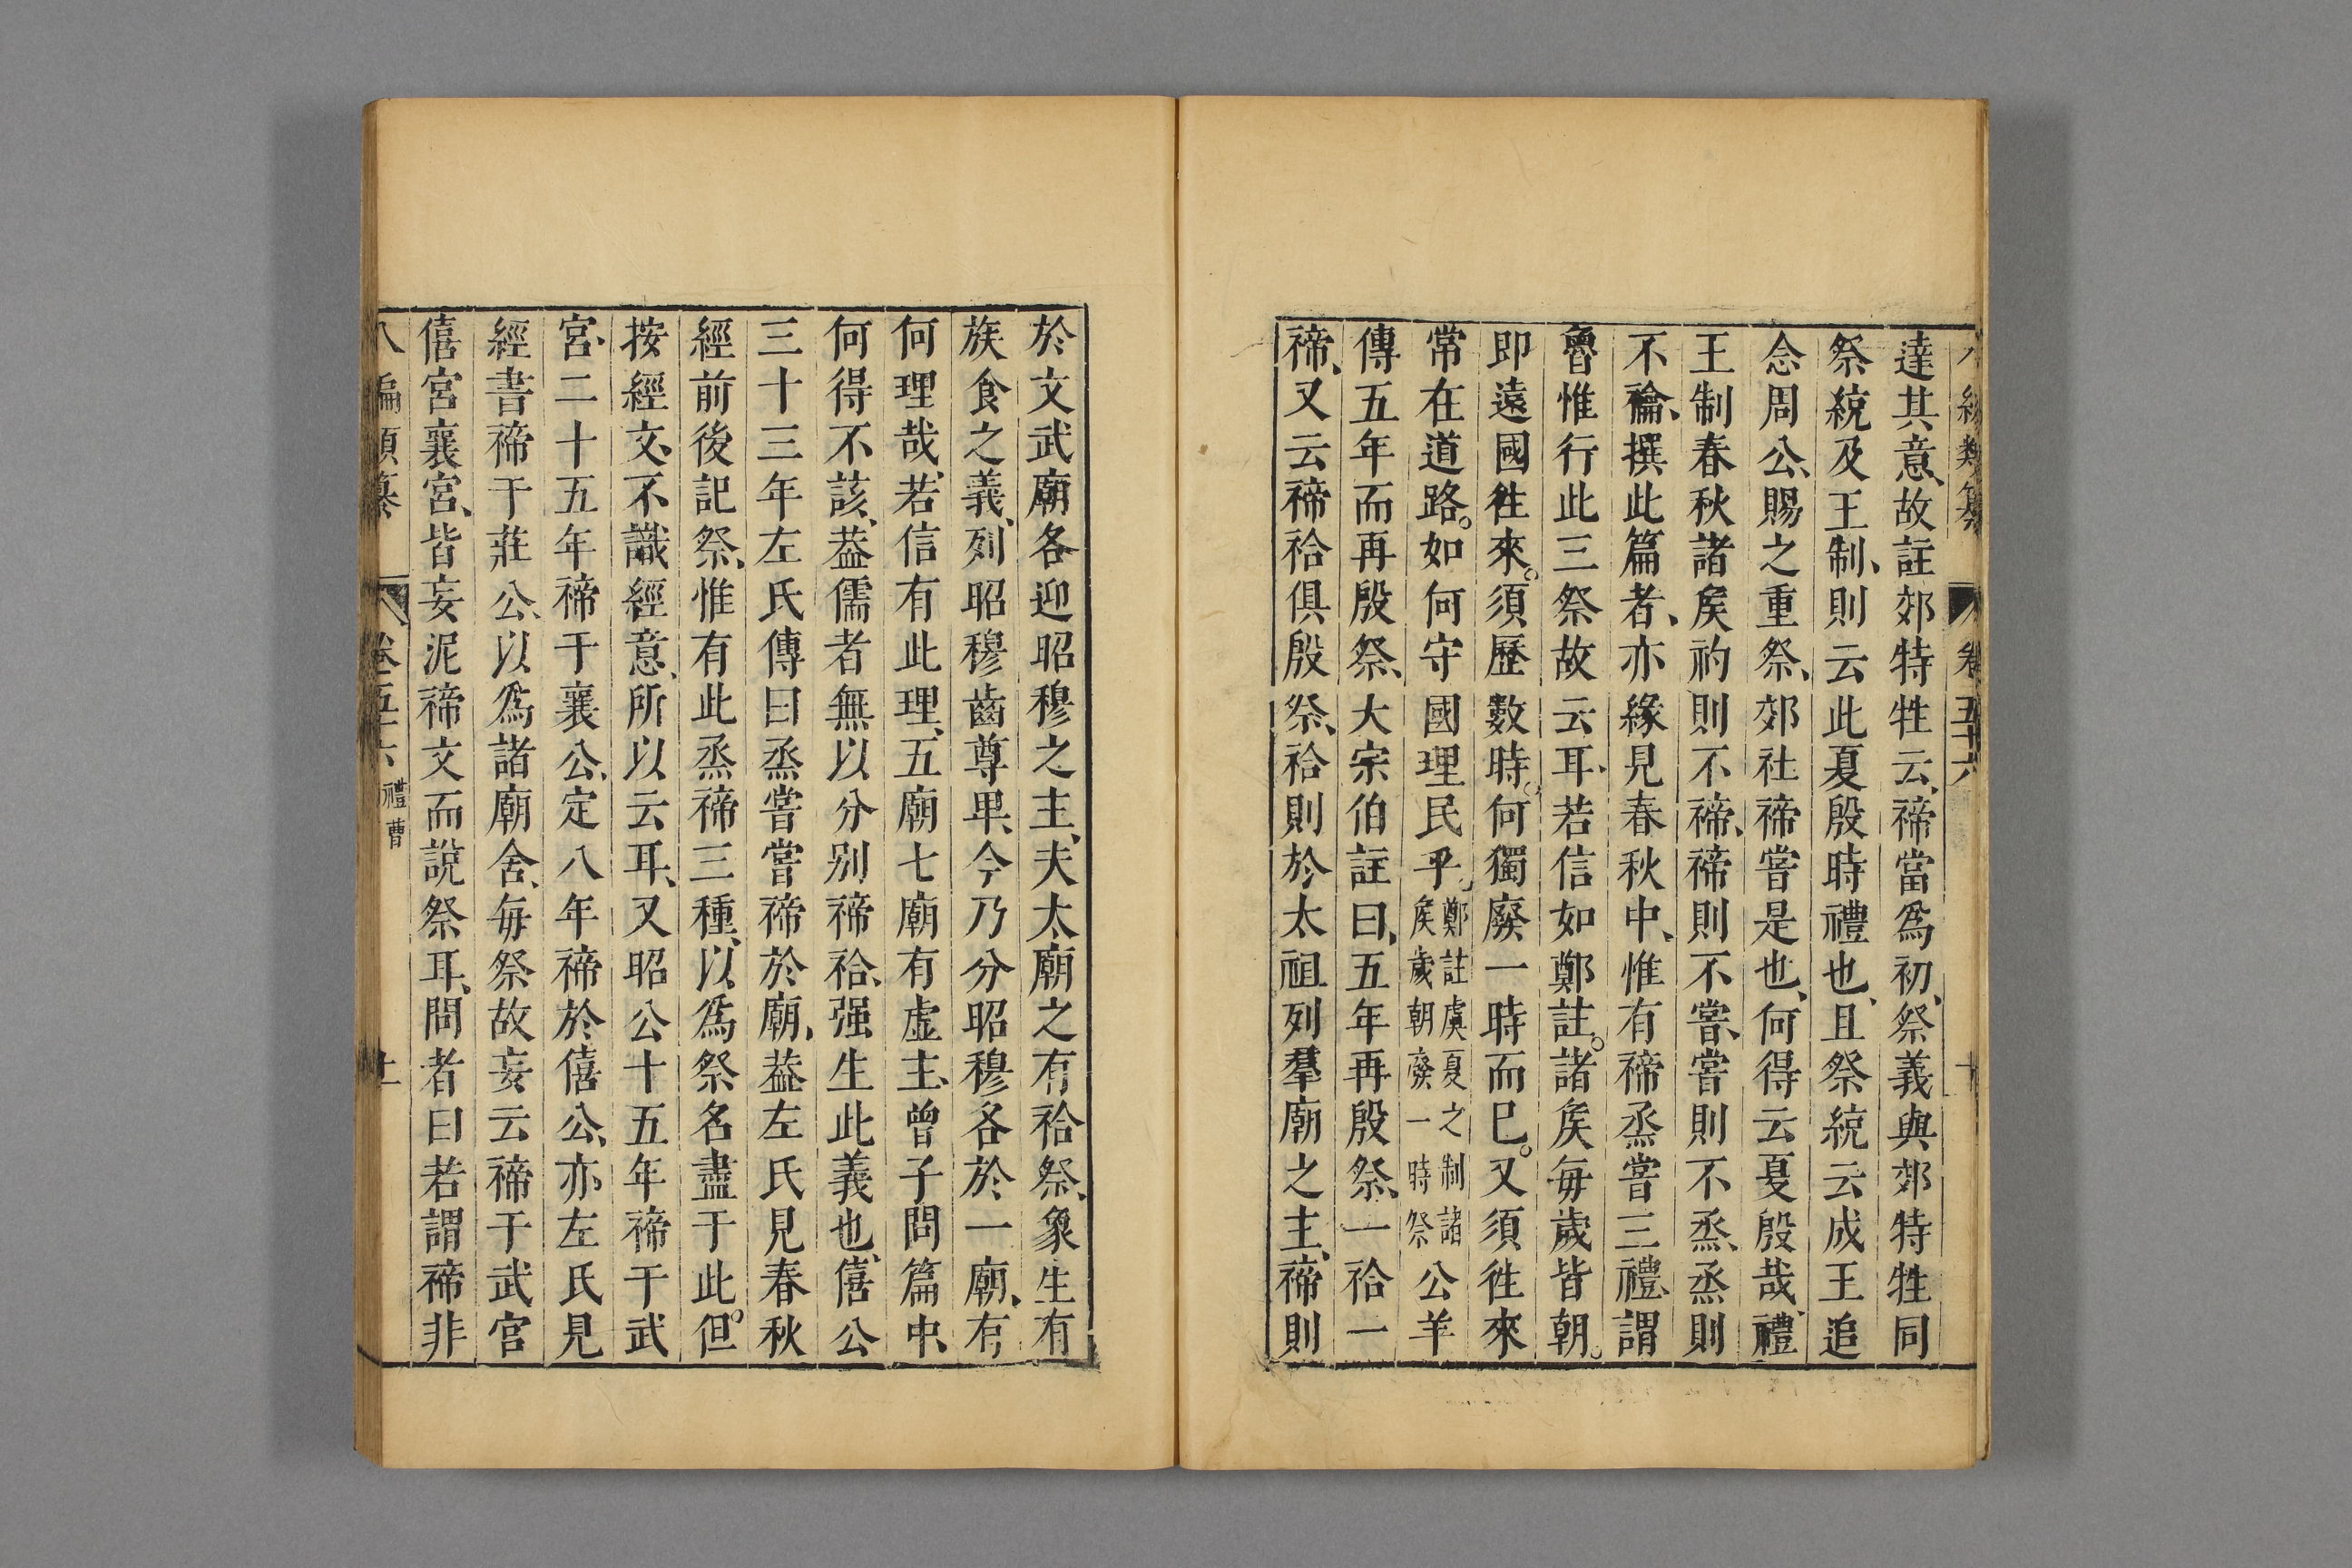 達其意、故註郊特牲云、禘當爲初、祭義與郊特牲同
祭統及王制、則云此夏殷時禮也、且祭統云成王追
念周公、賜之重祭、郊社禘嘗是也、何得云夏殷哉、禮
王制春秋諸矦礿則不禘、禘則不嘗、嘗則不烝、烝則
不禴、撰此篇者、亦緣見春秋中、惟有禘烝嘗三禮、謂
魯惟行此三祭故云耳、若信如鄭註。諸矦毎歲皆朝。
即遠國徃來。須歷數時。何獨廢一時而已。又須徃來
常在道路。如何守國理民乎。鄭註虞夏之制諸矦歲朝廢一時祭公羊
傳五年而再殷祭、大宗伯註曰、五年再殷祭、一祫一
禘、又云禘祫俱殷祭、祫則於太祖列羣廟之主、禘則
於文武廟各迎昭穆之主、夫太廟之有祫祭、象生有
族食之義、列昭穆齒尊卑、今乃分昭穆各於一廟、有
何理哉、若信有此理、五廟七廟有虛主、曾子問篇中、
何得不該、葢儒者無以分别禘祫、强生此義也、僖公
三十三年左氏傳曰烝嘗嘗禘於廟、葢左氏見春秋
經前後記祭、惟有此烝禘三種、以爲祭名盡于此。但
按經文、不識經意、所以云耳、又昭公十五年禘于武
宮、二十五年禘于襄公、定八年禘於僖公、亦左氏見
經書禘于莊公、以爲諸廟舍、毎祭故妄云禘于武宮
僖宮襄宮、皆妄泥禘文而說祭耳、問者曰若謂禘非
八編類纂 卷五十六 禮曹 十一